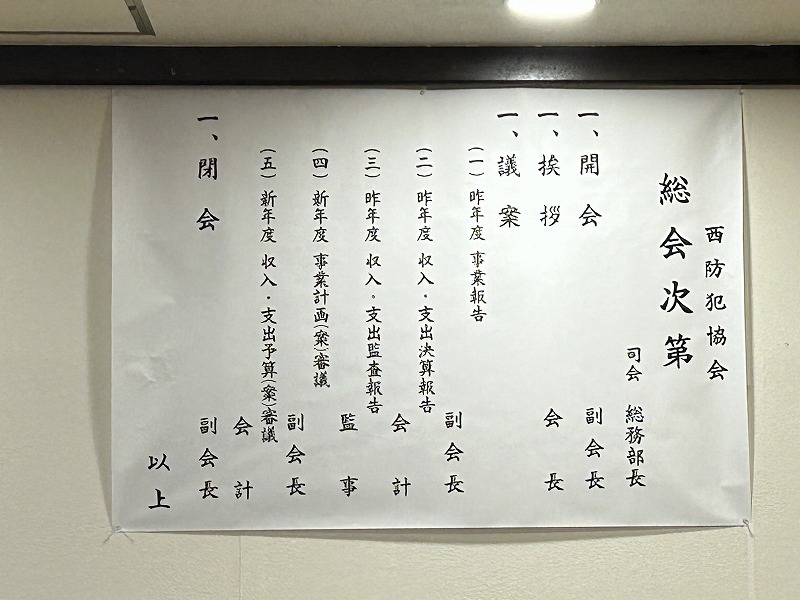 西防犯協会
総会次第
司会 総務部長
一、開会 副会長
一、挨拶 会長
一、議案
(一) 昨年度 事業報告 副会長
(二) 昨年度 収入・支出決算報告 会計
(三) 昨年度 収入。支出監査報告 監事
(四) 新年度 事業計画(案)審議 副会長
(五) 新年度 収入・支出予算(案)審議 会計
一、閉会 副会長
以上